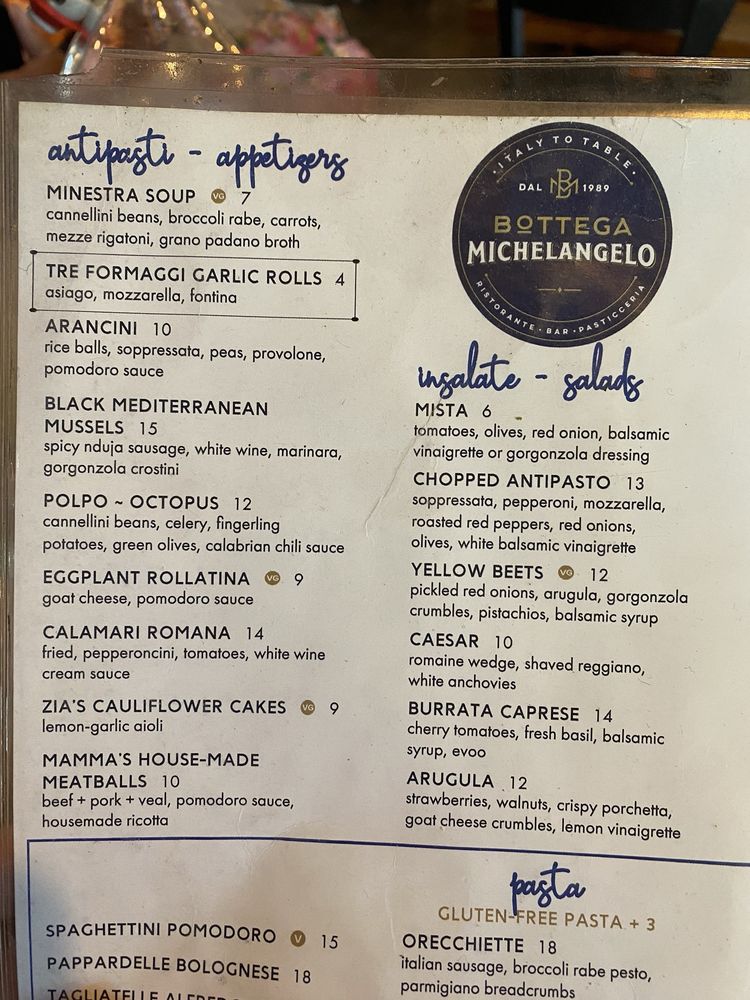 antipasti - appetizers
MINESTRA SOUP VG 7
cannellini beans, broccoli rabe, carrots,
mezze rigatoni, grano padano broth
TRE FORMAGGI GARLIC ROLLS 4
asiago, mozzarella, fontina
ARANCINI 10
rice balls, soppressata, peas, provolone,
pomodoro sauce
BLACK MEDITERRANEAN
MUSSELS 15
spicy nduja sausage, white wine, marinara,
gorgonzola crostini
POLPO ~ OCTOPUS 12
cannellini beans, celery, fingerling
potatoes, green olives, calabrian chili sauce
EGGPLANT ROLLATINA VG 9
goat cheese, pomodoro sauce
CALAMARI ROMANA 14
fried, pepperoncini, tomatoes, white wine
cream sauce
ZIA'S CAULIFLOWER CAKES VG 9
lemon-garlic aioli
MAMMA'S HOUSE-MADE
MEATBALLS 10
beef + pork + veal, pomodoro sauce,
housemade ricotta
• ITALY TO TABLE •
DAL BM 1989
BOTTEGA
MICHELANGELO
RISTORANTE • BAR • PASTICCERIA
insalate - salads
MISTA 6
tomatoes, olives, red onion, balsamic
vinaigrette or gorgonzola dressing
CHOPPED ANTIPASTO 13
soppressata, pepperoni, mozzarella,
roasted red peppers, red onions,
olives, white balsamic vinaigrette
YELLOW BEETS VG 12
pickled red onions, arugula, gorgonzola
crumbles, pistachios, balsamic syrup
CAESAR 10
romaine wedge, shaved reggiano,
white anchovies
BURRATA CAPRESE 14
cherry tomatoes, fresh basil, balsamic
syrup, evoo
ARUGULA 12
strawberries, walnuts, crispy porchetta,
goat cheese crumbles, lemon vinaigrette
pasta
GLUTEN-FREE PASTA + 3
SPAGHETTINI POMODORO V 15
PAPPARDELLE BOLOGNESE 18
TAGLIATELLE
ORECCHIETTE 18
italian sausage, broccoli rabe pesto,
parmigiano breadcrumbs